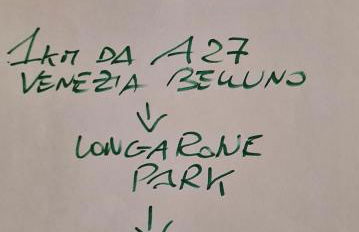 1 KM DA A27
VENEZIA BELLUNO
↓
LONGARONE
PARK
↓